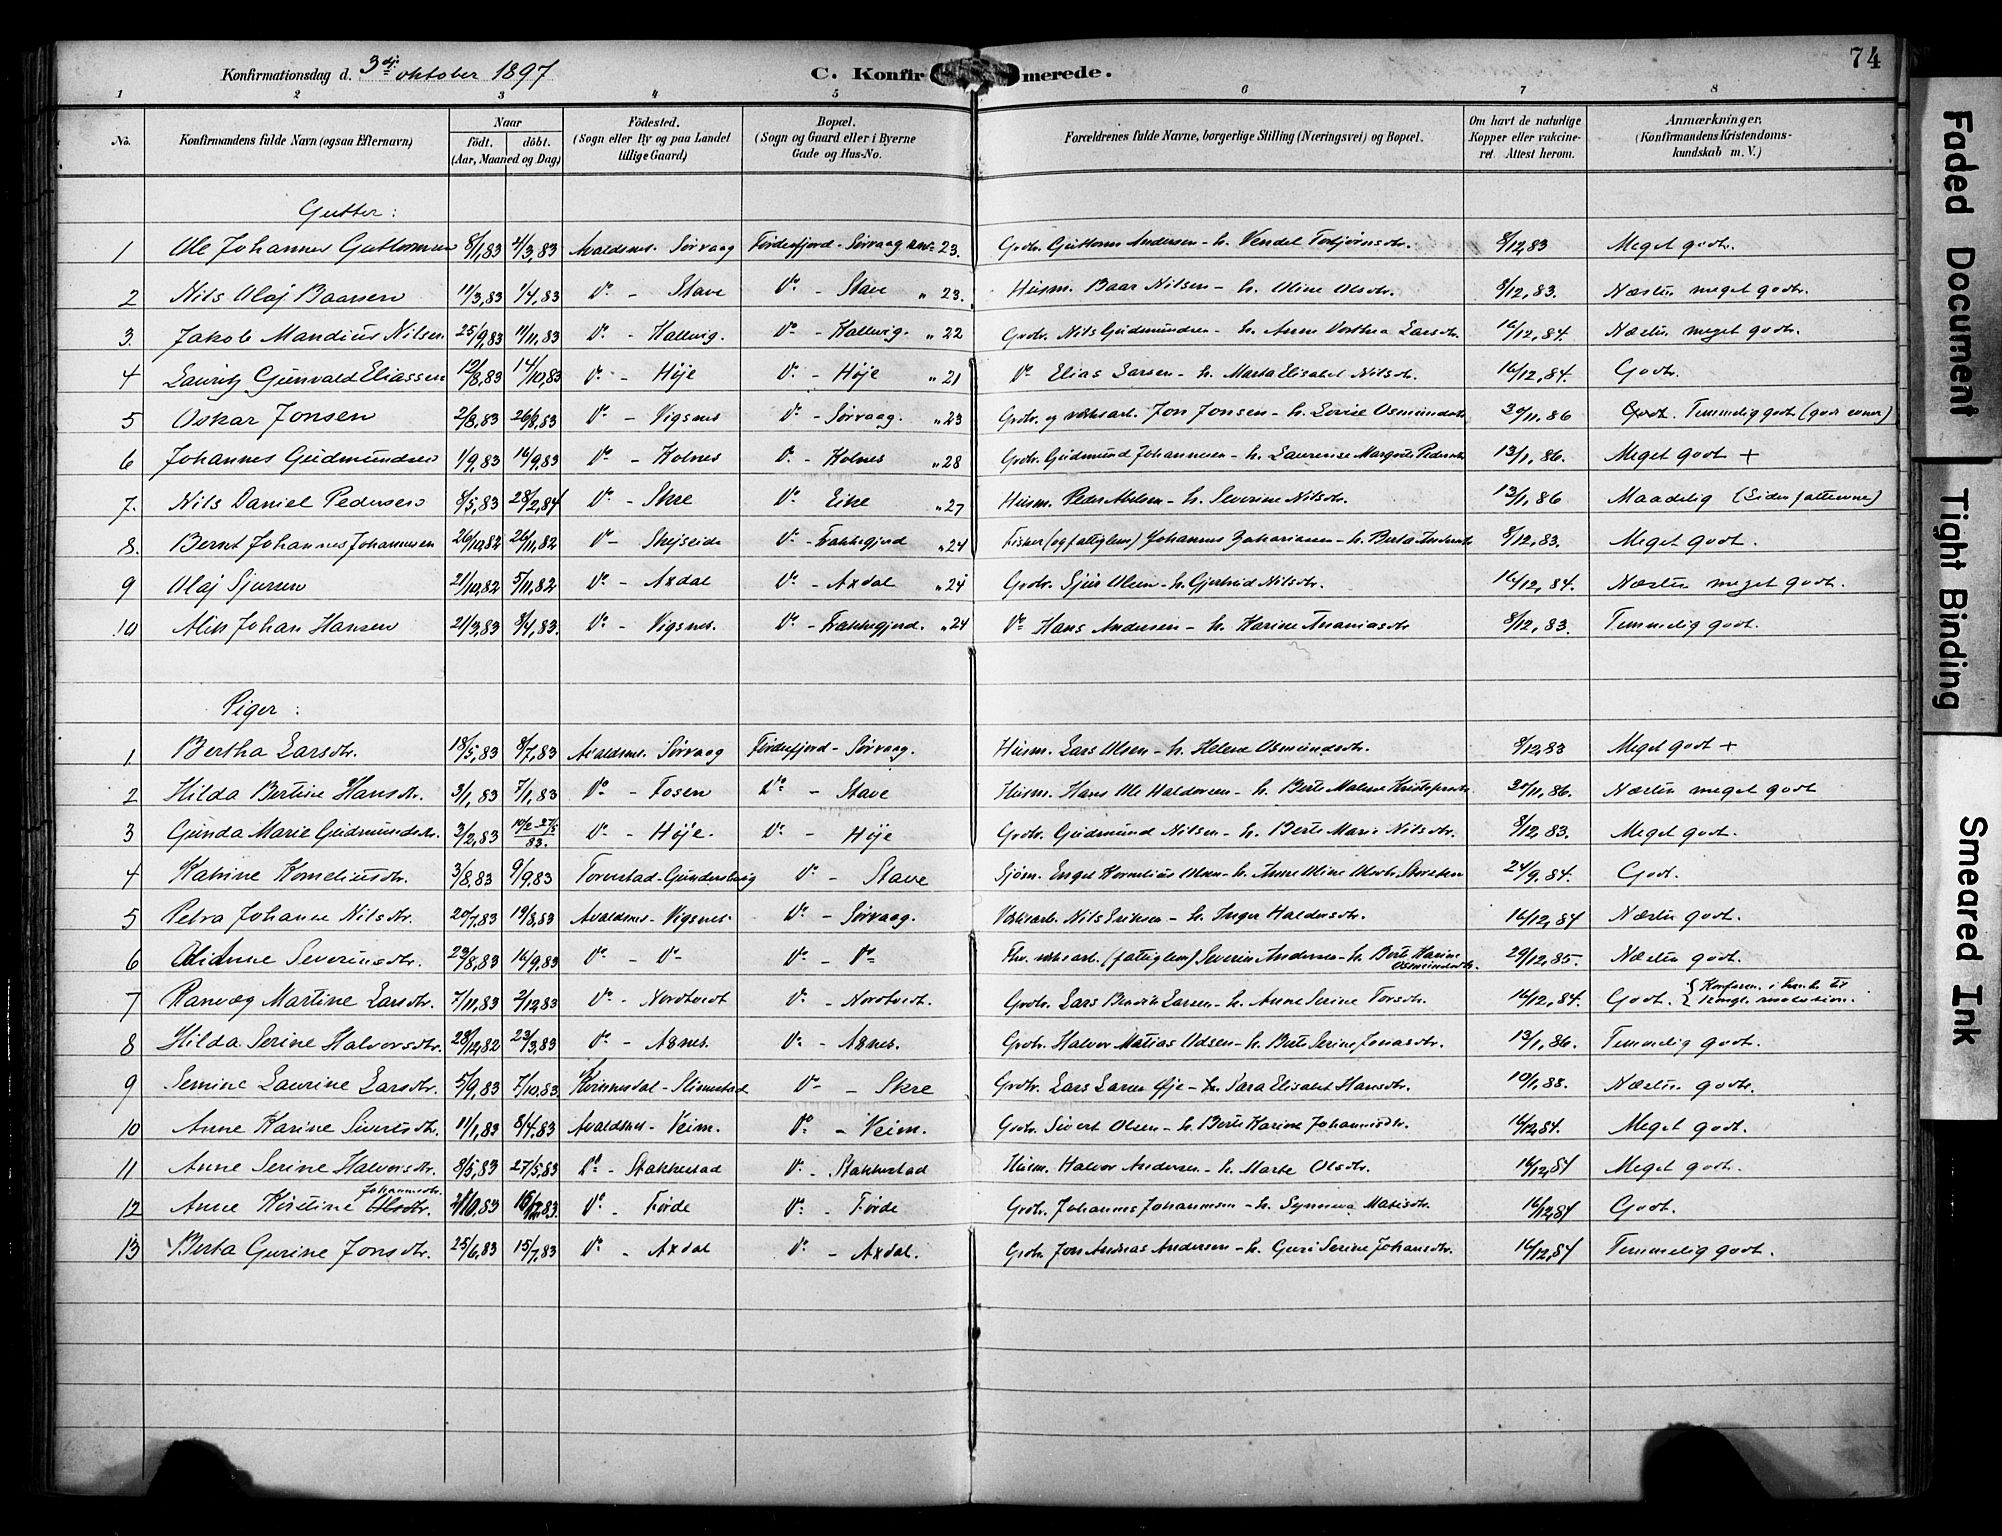 74
Konfirmationsdag d. 3dj: oktober 1897 C. Konfirmerede.
1 2 3 4 5 6 7 8
No. Konfirmandens fulde Navn (ogsaa Efternavn) Naar født. døbt. (Aar, Maaned og Dag) Födested. (Sogn eller By og paa Landet tillige Gaard) Bopæl. (Sogn og Gaard eller i Byerne Gade og Hus-No. Forældrenes fulde Navne, borgerlige Stilling (Næringsvei) og Bopæl. Om havt de naturlige Kopper eller vakcineret Attest herom. Anmærkninger. (Konfirmandens Kristendomskundskab m. V.)
Gutter:
1 Ole Johannes Guttormsen 8/1,83 4/3,83 Avaldsnes. Sørvaag Førdesfjord - Sørvaag 23. Grdbr. Guttorm Andersen - h. Vendel Torbjørnsdtr. 8/12,83 Meget godt.
2 Nils Olaj Baarsen 11/3,83 1/4,83 Do - Stave Do - Stave " 23. Husm. Baar Nilsen - h. Oline Olsdtr. 8/12,83. Næsten meget godt.
3. Jakob Mandius Nilsen 25/9,83 11/11,83 Do - Hallvig. Do - Hallvig. " 22 Grdbr. Nils Gudmundsen - h. Anne Dorthea Larsdtr. 16/12,84. Næsten meget godt.
4 Lauritz Gunvald Eliassen 12/8,83 14/10,83 Do - Høje Do - Høje " 21 Do Elias Larsen - h. Marta Elisabet Nilsdtr. 16/12,84. Godt.
5 Oskar Jonsen 2/8,83 26/8,83 Do - Vigsnes Do - Sørvaag. " 23 Grdbr. og verksarb. Jon Jonsen - h. Lovise Osmundsdtr 30/11,86 Godt. Temmelig godt (gode evner)
6 Johannes Gudmundsen 1/9,83 16/9,83 Do - Kolnes Do - Kolnes " 28 Grdbr. Gudmund Johannesen - h. Laurense Margrete Pedersdtr 13/1,86. Meget godt +
7. Nils Daniel Pedersen 8/5,83 28/2,84 Do - Skre Do Eike " 27 Husm. Peder - h. Severine Nilsdtr. 13/1,86 Maadelig (Liden fatteevne)
8. Bernt Johannes Johannesen 26/10,82 26/11,82 Do - Skejseide Do - Fakkegjerd " 24 Fisker (og fattiglem) Johannes Zakariasen - h. Berta 8/12,83. Meget godt.
9 Olaj Sjursen 21/10,82 5/11,82 Do - Axdal Do - Axdal " 24 Grdbr. Sjur Olsen - h. Gjertrud Nilsdtr. 16/12,84. Næsten meget godt.
10 Johan Hansen 21/3,83 8/4,83. Do - Vigsnes. Do - Fakkegjerd. " 24 Do Hans Andersen - h. Karine Ananiasdtr 8/12,83. Temmelig godt.
Piger:
1. Bertha Larsdtr. 18/5,83 8/7,83 Avaldsnes. Sørvaag Førdesfjord - Sørvaag. Husm. Lars Olsen - h. Helene Osmundsdtr. 8/12,83 Meget godt +
2 Hilda Bertine Hansdtr. 3/1,83 7/1,83 Do - Fosen Do - Stave Husm. Hans Ole Haldorsen - h. Berte Malene Kristofersdtr 30/11,86. Næsten meget godt
3 Gunda Marie Gudmundsdtr. 3/2,83 10/2-27/5 83. Do - Høje. Do - Høje Grdbr. Gudmund Nilsen - h. Berte Marie Nilsdtr. 8/12,83. Meget godt.
4 Katrine Korneliusdtr. 3/8,83 9/9,83 Torvestad - Do - Stave Sjøm. Engel Kornelius Olsen - h. Anne Oline Olsdtr. 24/9,84. Godt.
5 Petra Johanne Nilsdtr. 20/7,83 19/8,83 Avaldsnes - Vigsnes. Do - Sørvaag. Verksarb. Nils Eriksen - h. Inger Haldorsdtr. 16/12,84 Næsten godt.
6 Severinsdtr. 23/8,83 16/9,83 Do - Do Do - Do Fhv. verksarb. (fattiglem) Severin Andersen - h. Berte Karine Osmundsdtr. 29/12,85. Næsten godt.
7 Ranveg Martine Larsdtr. 7/11,83 2/12,83 Do - Nordtvedt Do - Nordtvedt. Grdbr. Lars Bendik Larsen - h. Anne Serine Torsdtr. 16/12,84. Godt. Konferm. i henh. til kongl. resolution.
8 Hilda Serine Halvorsdtr. 28/12,82 23/3,83 Do - Asnes. Do - Asnes. Grdbr. Halvor Matias Odsen - h. Berte Serine Jonasdtr. 13/1,86. Temmelig godt.
9 Semine Laurine Larsdtr. 5/9,83 7/10,83 Do - Skre Grdbr. Lars Larsen Øje - h. Sara Elisabet Hansdtr. 10/1,88. Næsten godt.
10 Anne Karine Sivertsdtr. 11/1,83 8/4,83 Avaldsnes - Veim. Do - Veim. Grdbr. Sivert Olsen - h. Berte Karine Johannesdtr. 16/12,84. Meget godt.
11 Anne Serine Halvorsdtr. 8/5,83 27/5,83 Do - Stakkestad Do - Stakkestad Husm. Halvor Andersen - h. Marte Olsdtr. 16/12,84 Meget godt.
12 Anne Kirstine Olsdtr. Johannesdtr. 10,83 83. Do - Førde Do - Førde Grdbr. Johannes Johannesen - h. Synneva Matisdtr. 16/12,84 Godt.
13 Berta Gurine Jonsdtr. 25/6,83 15/7,83 Do - Axdal Do - Axdal. Grdbr. Jon Andreas Andersen - h. Guri Serine Johansdtr. 16/12,84 Temmelig godt.
Faded Document
Tight Binding
Smeared Ink